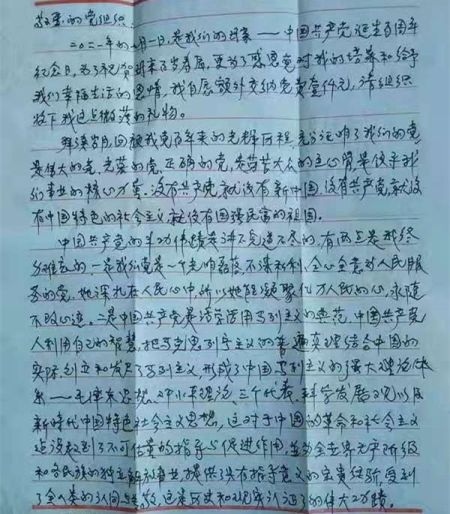 敬爱的党组织:
二〇二一年的七月一日,是我们的母亲——中国共产党诞生百周年
纪念日,为了祝贺母亲百岁寿辰,更为了感恩党对我的培养和给予
我们幸福生活的恩情,我自愿额外交纳党费壹仟元,请组织
收下我这点微薄的礼物。
回顾我党百年来的光辉历程,充分证明了我们的党
是伟大的党,光荣的党,正确的党,是劳苦大众的主心骨,是
们事业的核心力量。没有共产党,就没有新中国,没有共产党,就没
有中国特色的社会主义,就没有国强民富的祖国。
中国共产党的丰功伟绩是讲不完道不尽的,有两点是我终
一是我们党是一个光明磊落,不谋私利,全心全意为人民服
务的党,她深扎在人民心中,所以她能凝聚亿万人民的心,永随
不败。二是中国共产党是活学活用马列主义的典范,中国共产党
人利用自己的智慧,把马克思列宁主义的普遍真理结合中国的
实际,创立和发展了马列主义,形成了中国马列主义的强大理论体
系——毛泽东思想,邓小平理论,三个代表,科学发展观以及
新时代中国特色社会主义思想,这对于中国的革命和社会主义
建设起到了不可估量的指导和促进作用,为全世界无产阶级
和各民族的独立解放事业提供了具有指导意义的宝贵经验,受到
了全人类的认同,这是历史和现实认证了的伟大功绩。